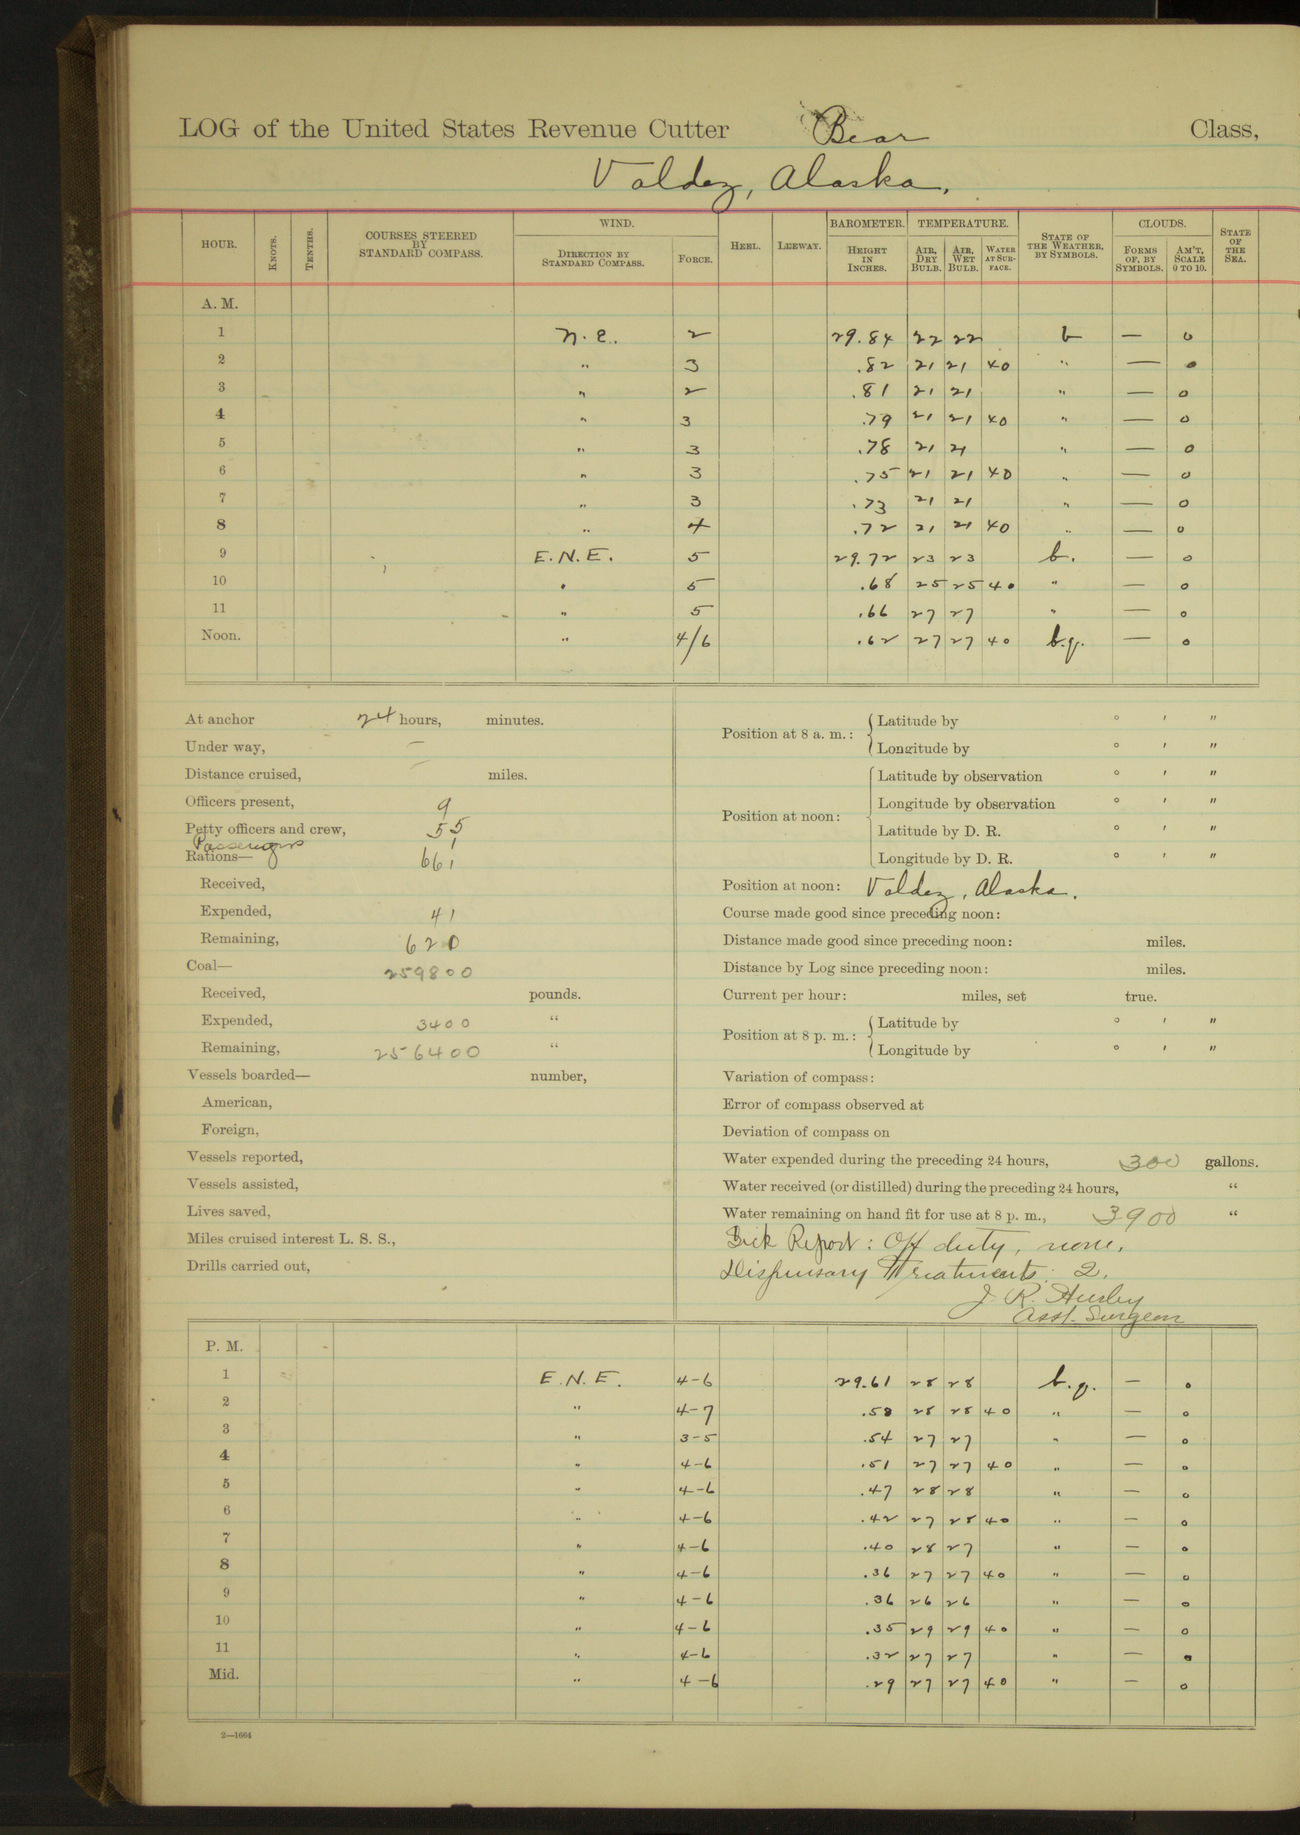 LOG of the United States Revenue Cutter Bear Class,
Valdez, Alaska.
HOUR. KNOTS. TENTHS. COURSES STEERED BY STANDARD COMPASS. WIND. DIRECTION BY STANDARD COMPASS. FORCE. HEEL. LEEWAY. BAROMETER. HEIGHT IN INCHES. TEMPERATURE. AIR, DRY BULB. AIR, WET BULB. WATER AT SURFACE. STATE OF THE WEATHER, BY SYMBOLS. CLOUDS. FORMS OF, BY SYMBOLS. AM'T, SCALE 0 TO 10. STATE OF THE SEA.
A. M.
1 N.E. 2 29.84 22 22 b — 0
2 " 3 .82 21 21 40 " — 0
3 " 2 .81 21 21 " — 0
4 " 3 .79 21 21 40 " — 0
5 " 3 .78 21 21 " — 0
6 " 3 .75 21 21 40 " — 0
7 " 3 .73 21 21 " — 0
8 " 4 .72 21 21 40 " — 0
9 E.N.E. 5 29.72 23 23 b. — 0
10 " 5 .68 25 25 40 " — 0
11 " 5 .66 27 27 " — 0
Noon. " 4/6 .62 27 27 40 b.q. — 0
At anchor 24 hours, minutes.
Under way, —
Distance cruised, — miles.
Officers present, 9
Petty officers and crew, 55
Passengers 1
Rations— 661
Received,
Expended, 41
Remaining, 620
Coal— 259800
Received, pounds.
Expended, 3400 "
Remaining, 256400 "
Vessels boarded— number,
American,
Foreign,
Vessels reported,
Vessels assisted,
Lives saved,
Miles cruised interest L. S. S.,
Drills carried out,
Position at 8 a. m.: Latitude by ° ′ ″
Longitude by ° ′ ″
Position at noon: Latitude by observation ° ′ ″
Longitude by observation ° ′ ″
Latitude by D. R. ° ′ ″
Longitude by D. R. ° ′ ″
Position at noon: Valdez, Alaska.
Course made good since preceding noon:
Distance made good since preceding noon: miles.
Distance by Log since preceding noon: miles.
Current per hour: miles, set true.
Position at 8 p. m.: Latitude by ° ′ ″
Longitude by ° ′ ″
Variation of compass:
Error of compass observed at
Deviation of compass on
Water expended during the preceding 24 hours, 300 gallons.
Water received (or distilled) during the preceding 24 hours, "
Water remaining on hand fit for use at 8 p. m., 3900 "
Sick Report: Off duty, none.
Dispensary Treatments: 2.
J. R. Hurley
Asst. Surgeon
P. M.
1 E.N.E. 4-6 29.61 28 28 b.q. — 0
2 " 4-7 .58 28 28 40 " — 0
3 " 3-5 .54 27 27 " — 0
4 " 4-6 .51 27 27 40 " — 0
5 " 4-6 .47 28 28 " — 0
6 " 4-6 .42 27 28 40 " — 0
7 " 4-6 .40 28 27 " — 0
8 " 4-6 .36 27 27 40 " — 0
9 " 4-6 .36 26 26 " — 0
10 " 4-6 .35 29 29 40 " — 0
11 " 4-6 .32 27 27 " — 0
Mid. " 4-6 .29 27 27 40 " — 0
2—1664